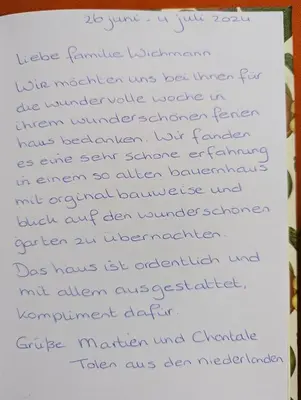 26 juni - 4 juli 2024
Liebe familie Wiehmann
Wir möchten uns bei Ihnen für
die wundervolle woche in
ihrem wunderschönen ferien
haus bedanken. Wir fanden
es eine sehr schöne erfahrung
in einem so alten bauernhaus
mit orginal bauweise und
blick auf den wunderschönen
garten zu übernachten.
Das haus ist ordentlich und
mit allem ausgestattet,
kompliment dafür.
Grüße Martien und Chantale
Tolen aus den niederlanden